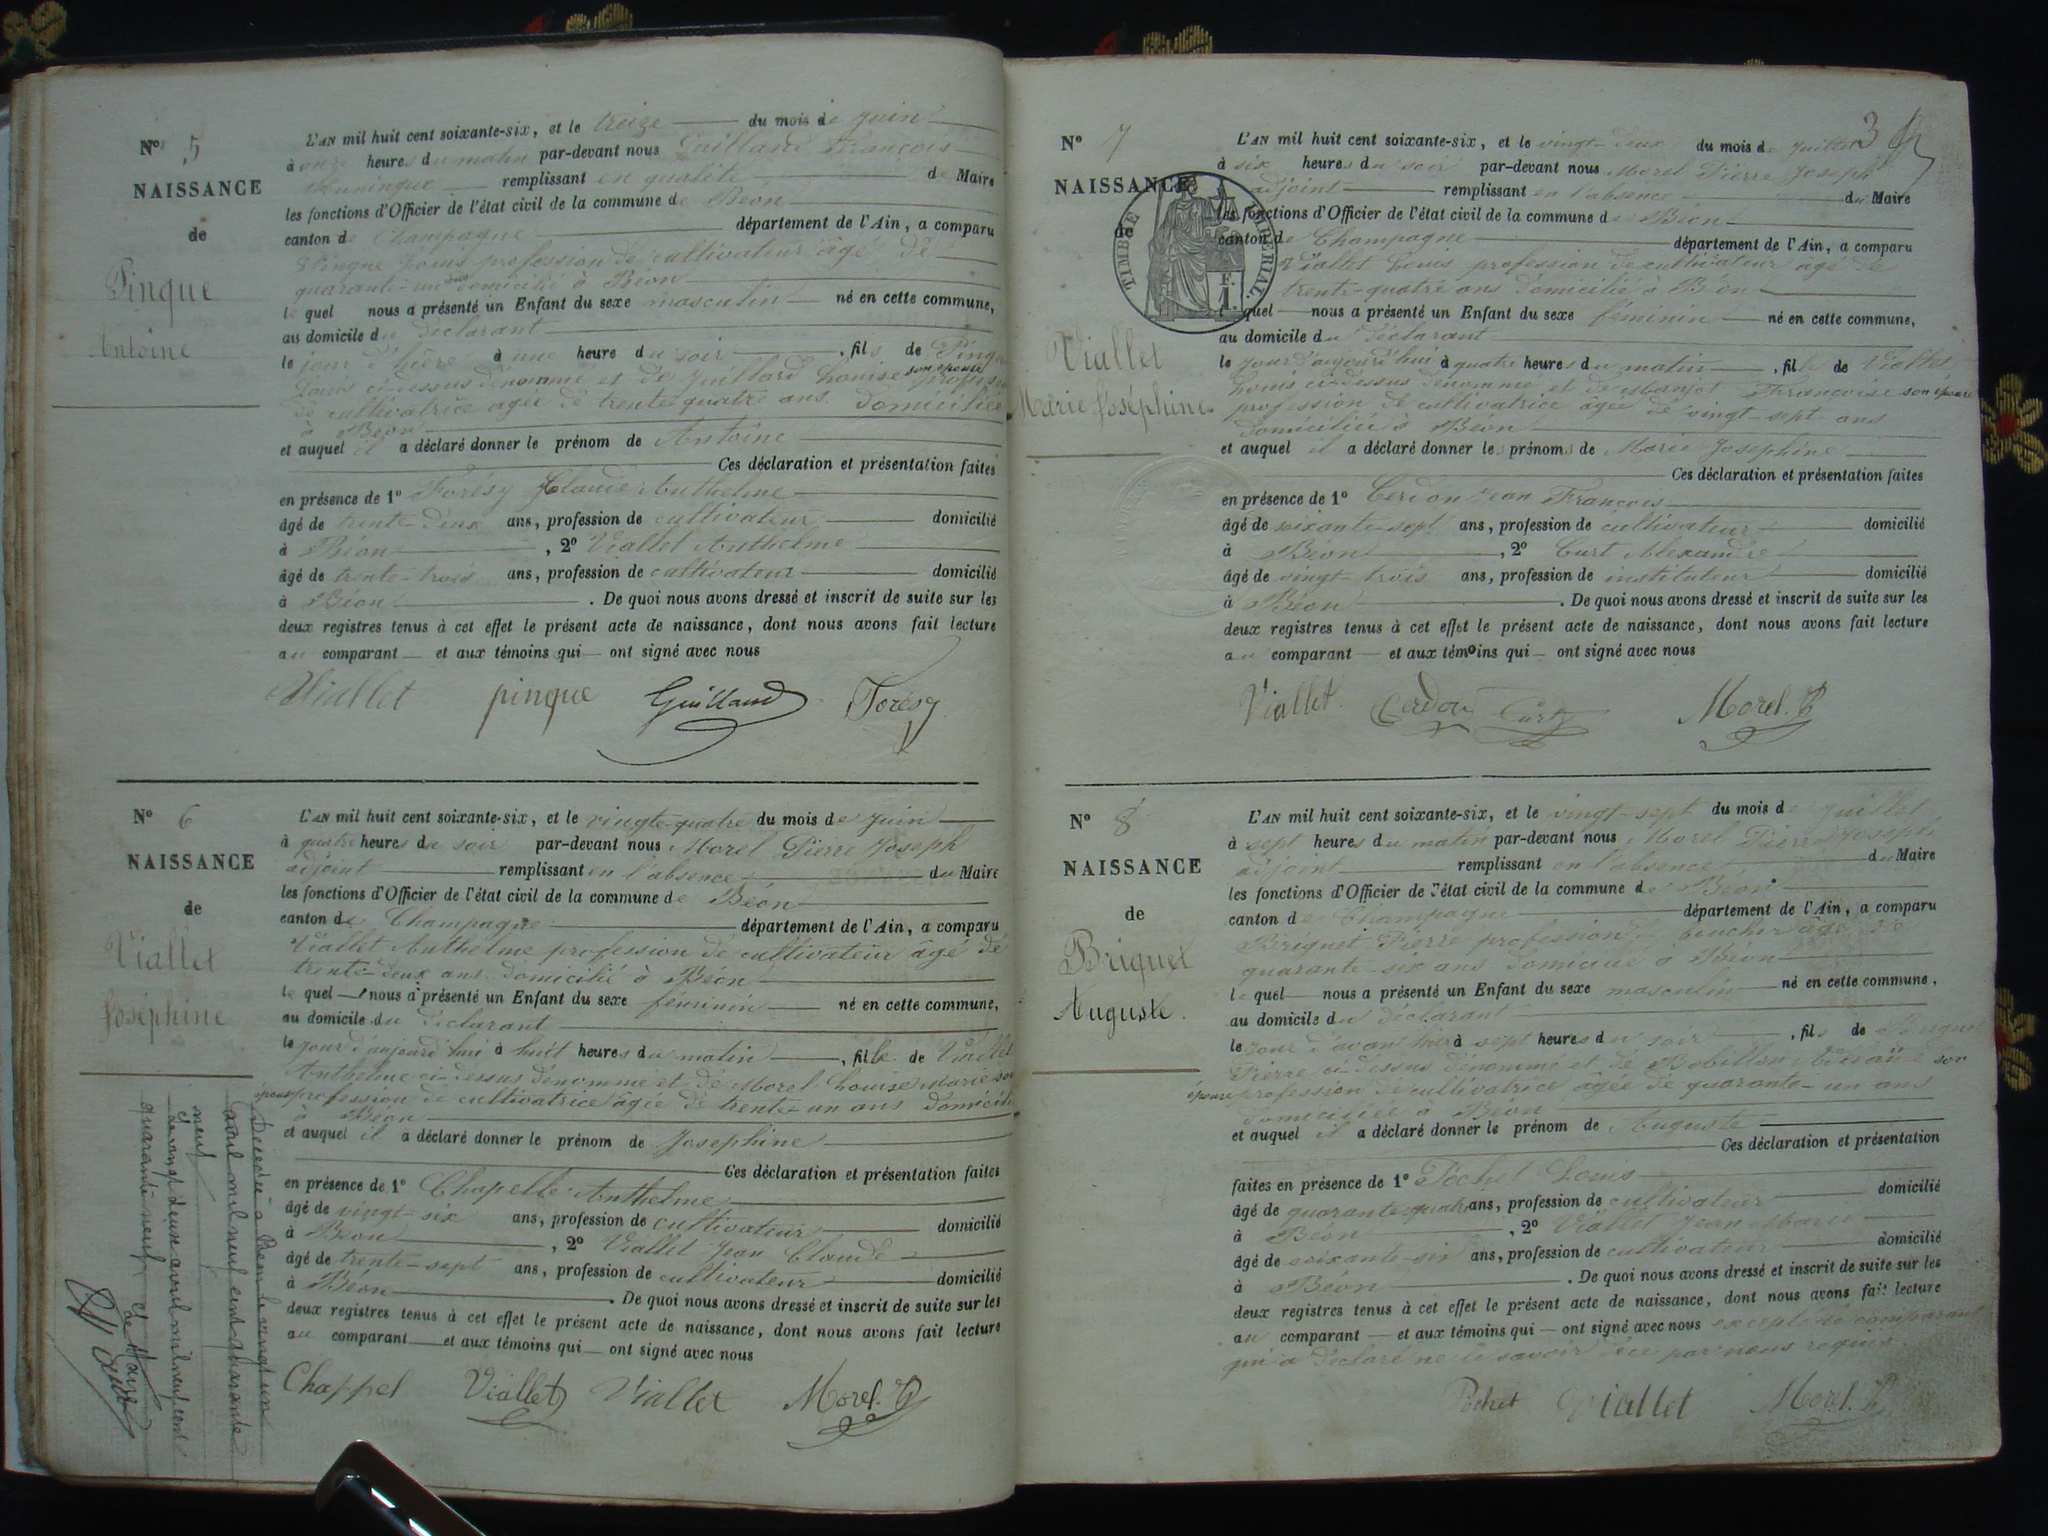 N° 5
NAISSANCE
de
Pinque
Antoine
L'AN mil huit cent soixante-six, et le treize du mois de juin
à onze heures du matin par-devant nous Guilland François
remplissant en qualité de Maire
les fonctions d'Officier de l'état civil de la commune de Béon
canton de Champagne département de l'Ain, a comparu
Pinque Louis profession de cultivateur âgé de
quarante-un ans domicilié à Béon
le quel nous a présenté un Enfant du sexe masculin né en cette commune,
au domicile du déclarant
le jour d'hière à une heure du soir, fils de Pinque
Louis ci-dessus dénommé et de Juillard Louise son épouse profession
de cultivatrice âgée de trente quatre ans domiciliée
à Béon
et auquel il a déclaré donner le prénom de Antoine
Ces déclaration et présentation faites
en présence de 1° Forésy Claude Anthelme
âgé de trente-deux ans, profession de cultivateur domicilié
à Béon, 2° Viallet Anthelme
âgé de trente-trois ans, profession de cultivateur domicilié
à Béon. De quoi nous avons dressé et inscrit de suite sur les
deux registres tenus à cet effet le présent acte de naissance, dont nous avons fait lecture
au comparant et aux témoins qui ont signé avec nous
Viallet pinque Guilland Forésy
N° 6
NAISSANCE
de
Viallet
Joséphine
L'AN mil huit cent soixante-six, et le vingt-quatre du mois de juin
à quatre heures du soir par-devant nous Morel Pierre Joseph
adjoint remplissant en l'absence du Maire
les fonctions d'Officier de l'état civil de la commune de Béon
canton de Champagne département de l'Ain, a comparu
Viallet Anthelme profession de cultivateur âgé de
trente-deux ans domicilié à Béon
le quel nous a présenté un Enfant du sexe féminin né en cette commune,
au domicile du déclarant
le jour d'aujourd'hui à huit heures du matin, fille de Viallet
Anthelme ci-dessus dénommé et de Morel Louise Marie son
épouse profession de cultivatrice âgée de trente-un ans domiciliée
à Béon
et auquel il a déclaré donner le prénom de Josephine
Ces déclaration et présentation faites
en présence de 1° Chapelle Anthelme
âgé de vingt-six ans, profession de cultivateur domicilié
à Béon, 2° Viallet Jean Claude
âgé de trente-sept ans, profession de cultivateur domicilié
à Béon. De quoi nous avons dressé et inscrit de suite sur les
deux registres tenus à cet effet le présent acte de naissance, dont nous avons fait lecture
au comparant et aux témoins qui ont signé avec nous
Chappel Viallet Viallet Morel. P
Décédée à Béon le vingt un
avril mil neuf cent quarante
neuf
le vingt deux avril mil neuf cent
quarante neuf
Le Maire
3
N° 7
NAISSANCE
de
Viallet
Marie Joséphine
TIMBRE IMPERIAL
1 F.
L'AN mil huit cent soixante-six, et le vingt-deux du mois de juillet
à six heures du soir par-devant nous Morel Pierre Joseph
adjoint remplissant en l'absence du Maire
les fonctions d'Officier de l'état civil de la commune de Béon
canton de Champagne département de l'Ain, a comparu
Viallet Louis profession de cultivateur âgé de
trente-quatre ans domicilié à Béon
le quel nous a présenté un Enfant du sexe féminin né en cette commune,
au domicile du déclarant
le jour d'aujourd'hui à quatre heures du matin, fille de Viallet
Louis ci-dessus dénommé et de Françoise son épouse
profession de cultivatrice âgée de vingt-sept ans
domiciliée à Béon
et auquel il a déclaré donner les prénoms de Marie Josephine
Ces déclaration et présentation faites
en présence de 1° Cerdon Jean François
âgé de soixante-sept ans, profession de cultivateur domicilié
à Béon, 2° Curt Alexandre
âgé de vingt-trois ans, profession de instituteur domicilié
à Béon. De quoi nous avons dressé et inscrit de suite sur les
deux registres tenus à cet effet le présent acte de naissance, dont nous avons fait lecture
au comparant et aux témoins qui ont signé avec nous
Viallet Cerdon Curt Morel. P
N° 8
NAISSANCE
de
Briquet
Auguste.
L'AN mil huit cent soixante-six, et le vingt-sept du mois de juillet
à sept heures du matin par-devant nous Morel Pierre Joseph
adjoint remplissant en l'absence du Maire
les fonctions d'Officier de l'état civil de la commune de Béon
canton de Champagne département de l'Ain, a comparu
Briquet Pierre profession boucher âgé de
quarante-six ans domicilié à Béon
le quel nous a présenté un Enfant du sexe masculin né en cette commune,
au domicile du déclarant
le jour d'avant hier à sept heures du soir, fils de Briquet
Pierre ci-dessus dénommé et de son
épouse profession de cultivatrice âgée de quarante-un ans
domiciliée à Béon
et auquel il a déclaré donner le prénom de Auguste
Ces déclaration et présentation
faites en présence de 1° Pochet Louis
âgé de quarante quatre ans, profession de cultivateur domicilié
à Béon, 2° Viallet Jean Marie
âgé de soixante-six ans, profession de cultivateur domicilié
à Béon. De quoi nous avons dressé et inscrit de suite sur les
deux registres tenus à cet effet le présent acte de naissance, dont nous avons fait lecture
au comparant et aux témoins qui ont signé avec nous excepté le comparant
qui a déclaré ne le savoir de ce par nous requis.
Pochet Viallet Morel. P